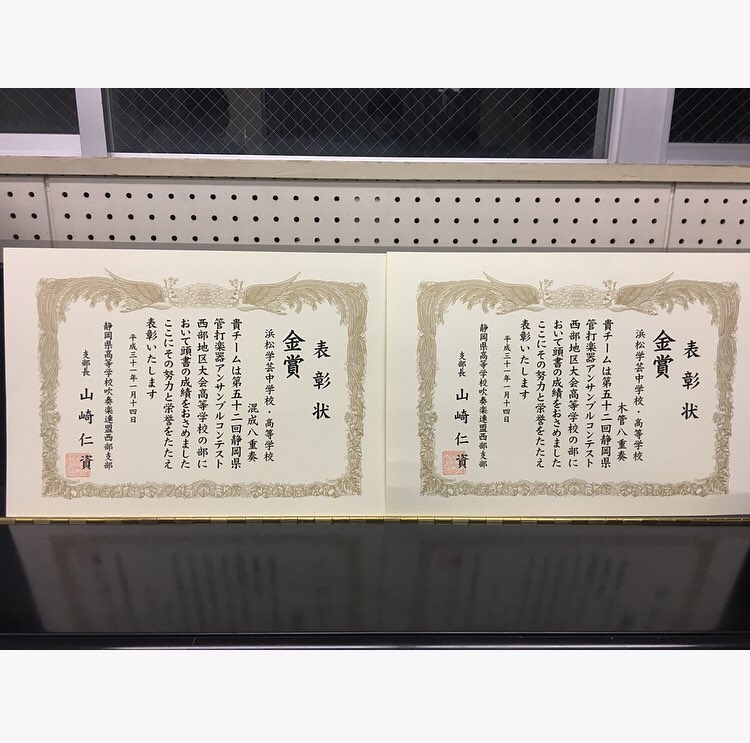 表彰状
金賞
浜松学芸中学校・高等学校
混成八重奏
貴チームは第五十二回静岡県
管打楽器アンサンブルコンテスト
西部地区大会高等学校の部に
おいて頭書の成績をおさめました
ここにその努力と栄誉をたたえ
表彰いたします
平成三十一年一月十四日
静岡県高等学校吹奏楽連盟西部支部
支部長 山崎仁資
表彰状
金賞
浜松学芸中学校・高等学校
木管八重奏
貴チームは第五十二回静岡県
管打楽器アンサンブルコンテスト
西部地区大会高等学校の部に
おいて頭書の成績をおさめました
ここにその努力と栄誉をたたえ
表彰いたします
平成三十一年一月十四日
静岡県高等学校吹奏楽連盟西部支部
支部長 山崎仁資